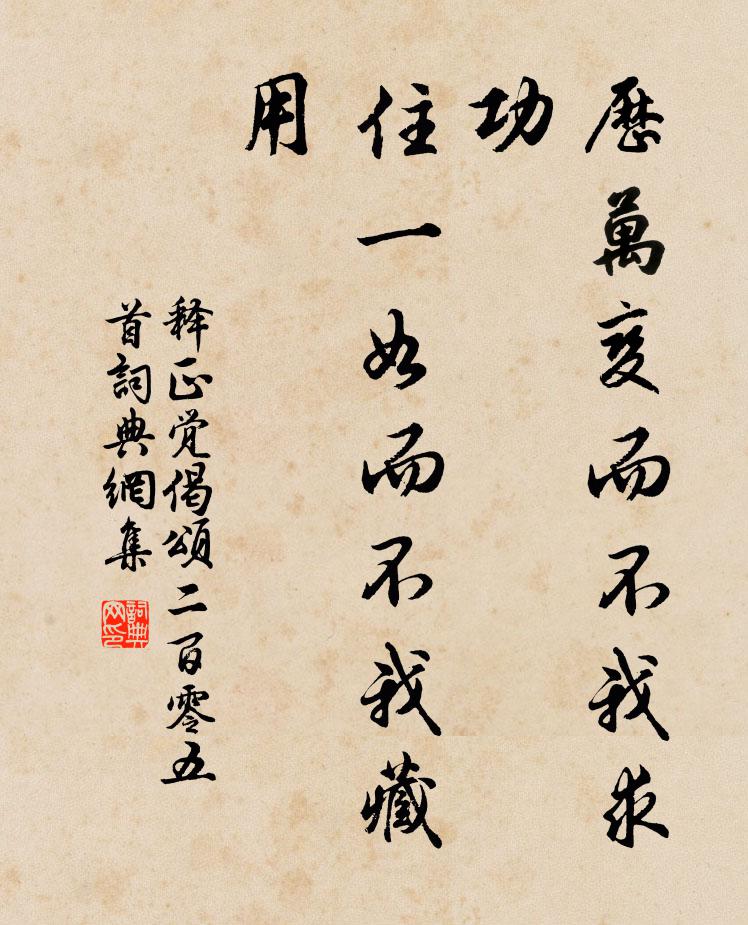 歴萬変而不我求
功
住一如而不我藏
用
释正覚偈頌二百零五
首詞典網集
詞典网印